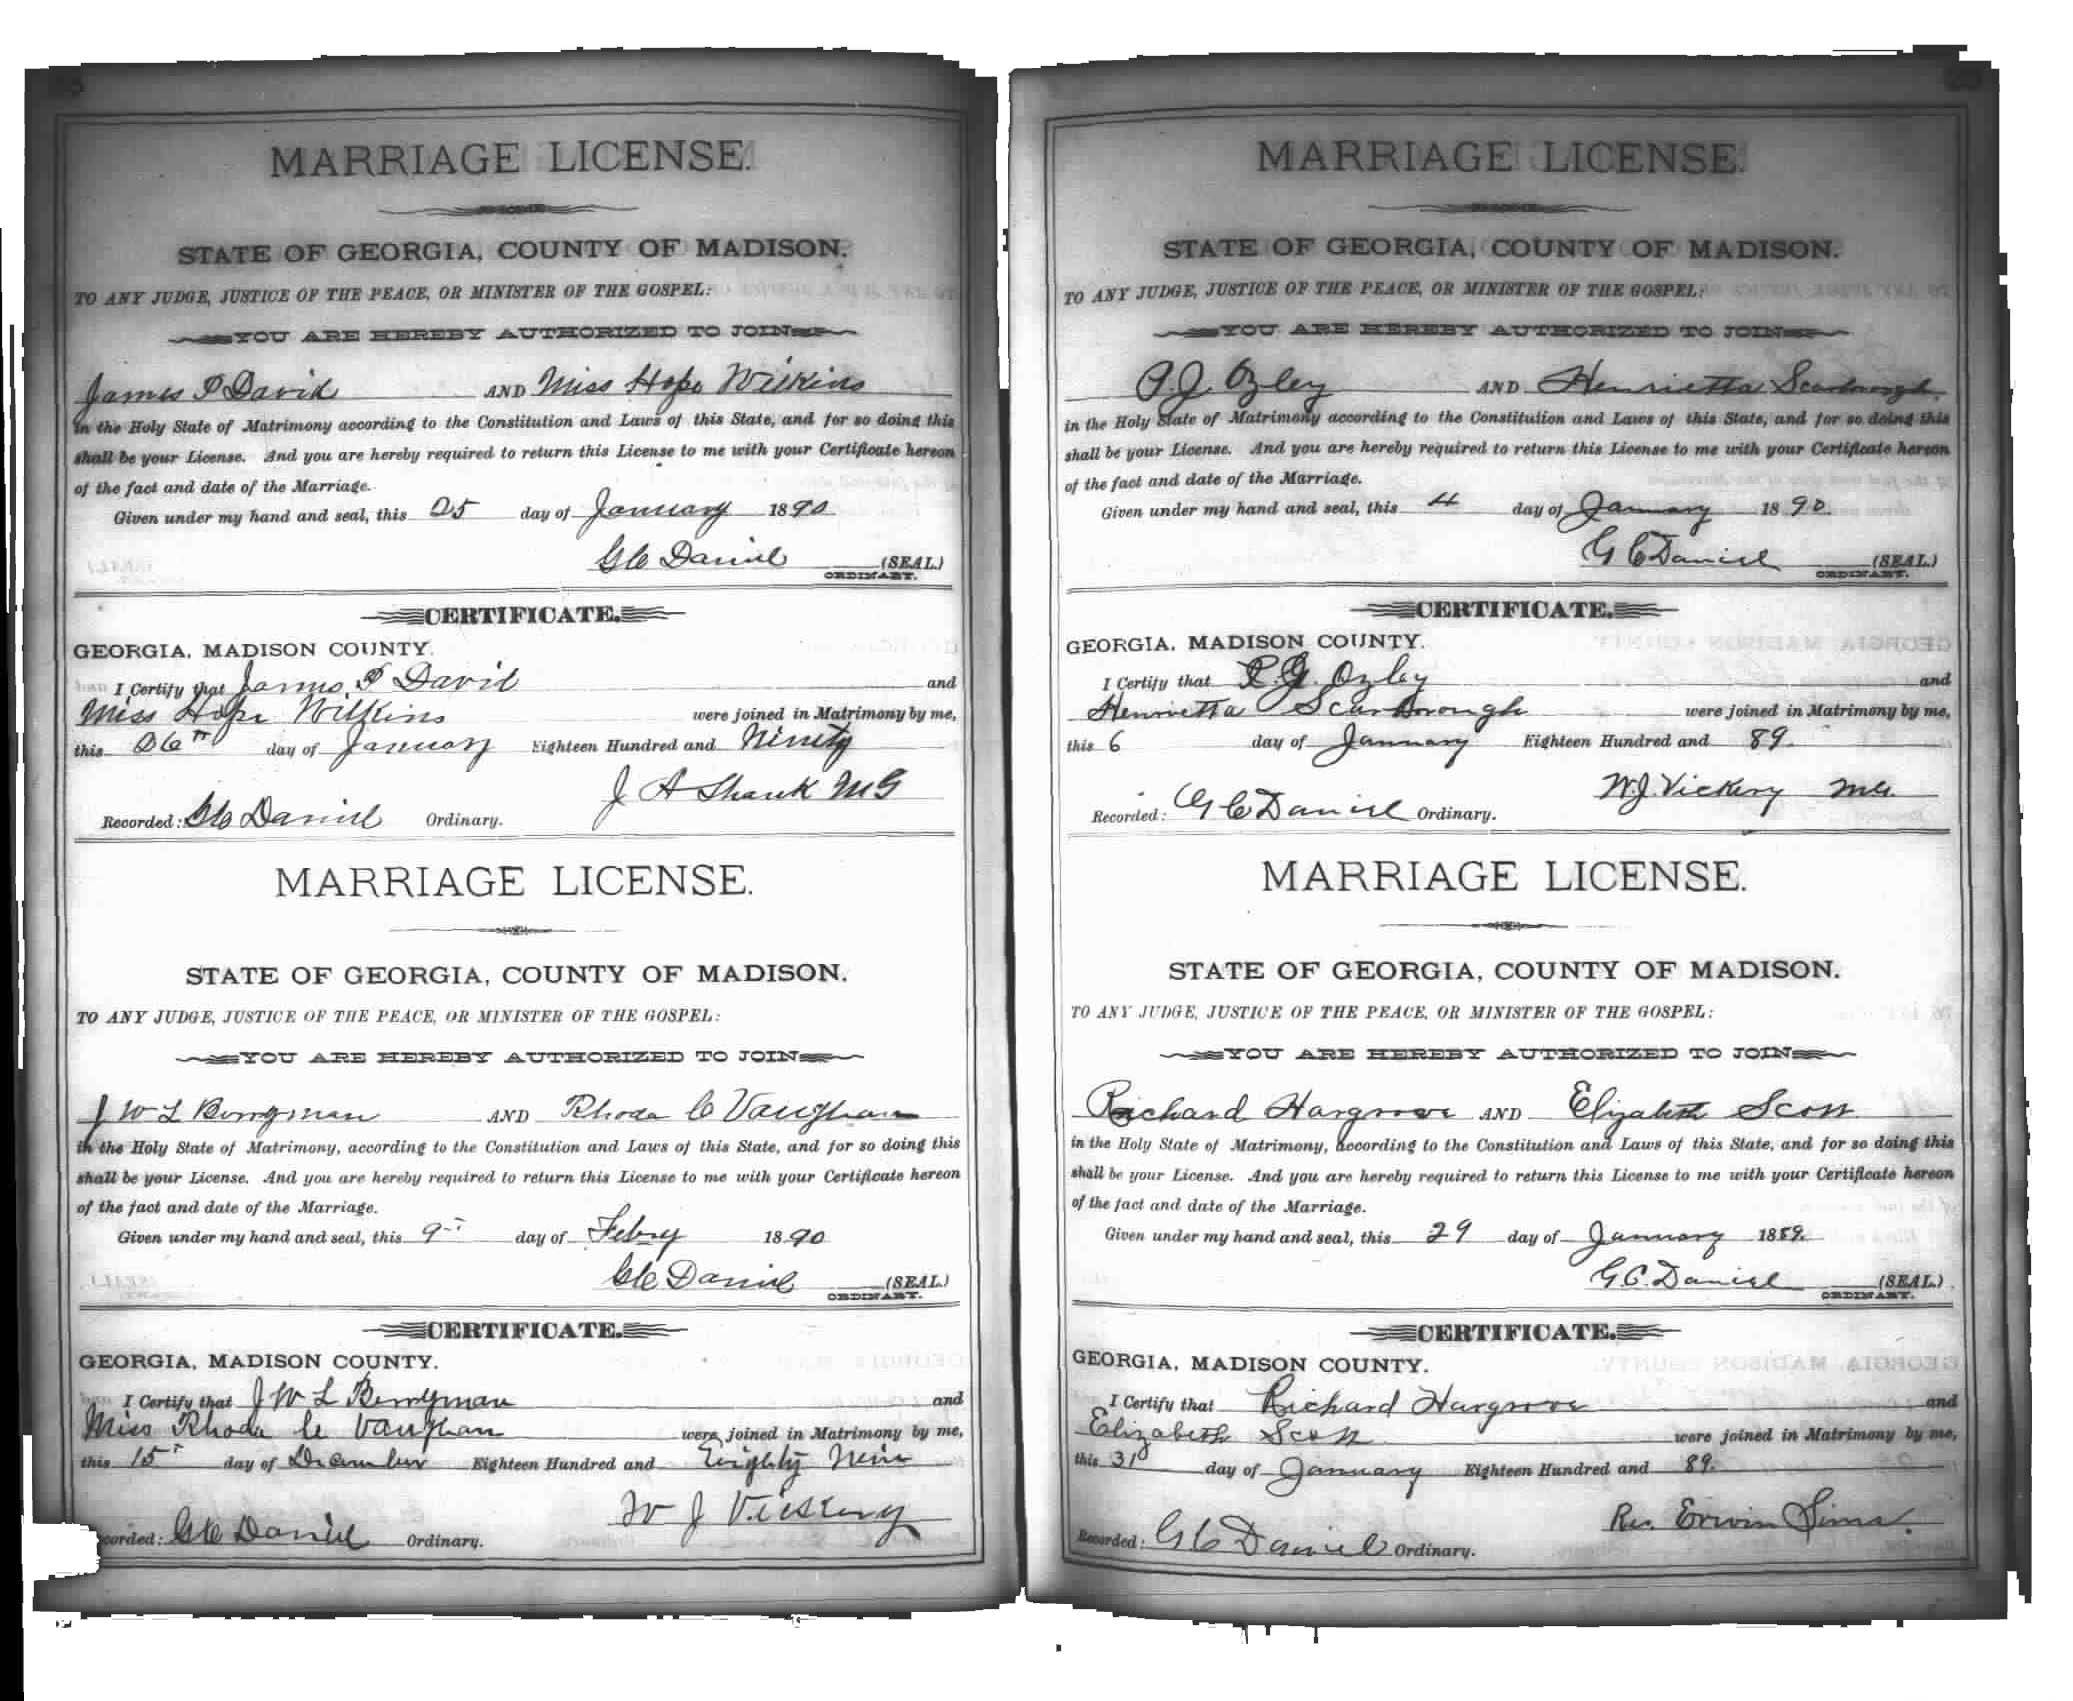 MARRIAGE LICENSE.
STATE OF GEORGIA, COUNTY OF MADISON.
TO ANY JUDGE, JUSTICE OF THE PEACE, OR MINISTER OF THE GOSPEL:
YOU ARE HEREBY AUTHORIZED TO JOIN
James P David AND Miss Hope Wilkins
in the Holy State of Matrimony according to the Constitution and Laws of this State, and for so doing this
shall be your License. And you are hereby required to return this License to me with your Certificate hereon
of the fact and date of the Marriage.
Given under my hand and seal, this 25 day of January 1890
G C Daniel (SEAL.)
ORDINARY.
CERTIFICATE.
GEORGIA, MADISON COUNTY.
I Certify that James P David and
Miss Hope Wilkins were joined in Matrimony by me,
this 26th day of January Eighteen Hundred and Ninety
J A Shank MG
Recorded: G C Daniel Ordinary.
MARRIAGE LICENSE.
STATE OF GEORGIA, COUNTY OF MADISON.
TO ANY JUDGE, JUSTICE OF THE PEACE, OR MINISTER OF THE GOSPEL:
YOU ARE HEREBY AUTHORIZED TO JOIN
J W L Berryman AND Rhoda C Vaughan
in the Holy State of Matrimony, according to the Constitution and Laws of this State, and for so doing this
shall be your License. And you are hereby required to return this License to me with your Certificate hereon
of the fact and date of the Marriage.
Given under my hand and seal, this 9 day of Febry 1890
G C Daniel (SEAL.)
ORDINARY.
CERTIFICATE.
GEORGIA, MADISON COUNTY.
I Certify that J W L Berryman and
Miss Rhoda C Vaughan were joined in Matrimony by me,
this 15 day of December Eighteen Hundred and Eighty Nine
W J Vickery
Recorded: G C Daniel Ordinary.
MARRIAGE LICENSE.
STATE OF GEORGIA, COUNTY OF MADISON.
TO ANY JUDGE, JUSTICE OF THE PEACE, OR MINISTER OF THE GOSPEL:
YOU ARE HEREBY AUTHORIZED TO JOIN
P. J. Ozley AND Henrietta Scarborough
in the Holy State of Matrimony according to the Constitution and Laws of this State, and for so doing this
shall be your License. And you are hereby required to return this License to me with your Certificate hereon
of the fact and date of the Marriage.
Given under my hand and seal, this 4 day of January 1890.
G C Daniel (SEAL.)
ORDINARY.
CERTIFICATE.
GEORGIA, MADISON COUNTY.
I Certify that P. J. Ozley and
Henrietta Scarborough were joined in Matrimony by me,
this 6 day of January Eighteen Hundred and 89.
W. J. Vickery MG.
Recorded: G C Daniel Ordinary.
MARRIAGE LICENSE.
STATE OF GEORGIA, COUNTY OF MADISON.
TO ANY JUDGE, JUSTICE OF THE PEACE, OR MINISTER OF THE GOSPEL:
YOU ARE HEREBY AUTHORIZED TO JOIN
Richard Hargrove AND Elizabeth Scott
in the Holy State of Matrimony, according to the Constitution and Laws of this State, and for so doing this
shall be your License. And you are hereby required to return this License to me with your Certificate hereon
of the fact and date of the Marriage.
Given under my hand and seal, this 29 day of January 1889.
G. C. Daniel (SEAL.)
ORDINARY.
CERTIFICATE.
GEORGIA, MADISON COUNTY.
I Certify that Richard Hargrove and
Elizabeth Scott were joined in Matrimony by me,
this 31 day of January Eighteen Hundred and 89.
Rev. Erwin Sims.
Recorded: G C Daniel Ordinary.